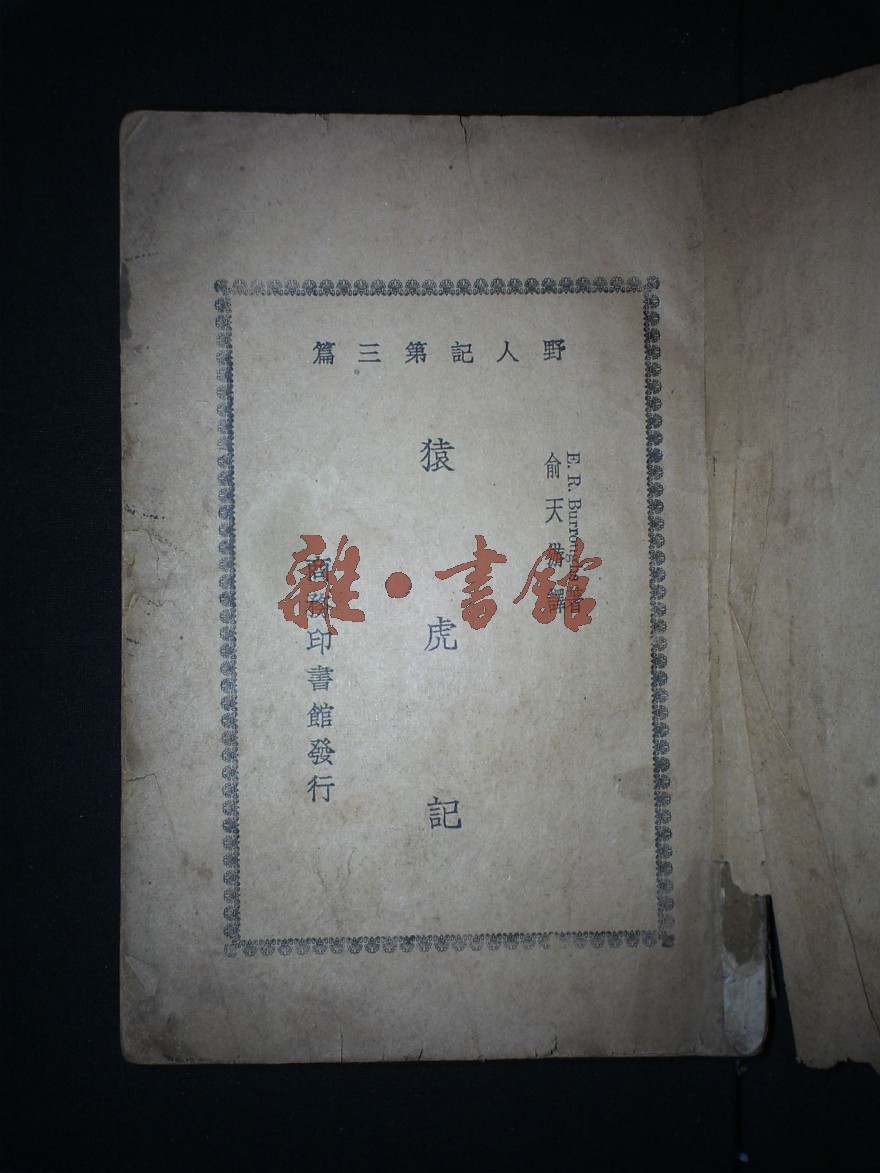 野人記第三篇
E. R. Burroughs 著
俞天游譯
猿虎記
商務印書館發行
雜·書館